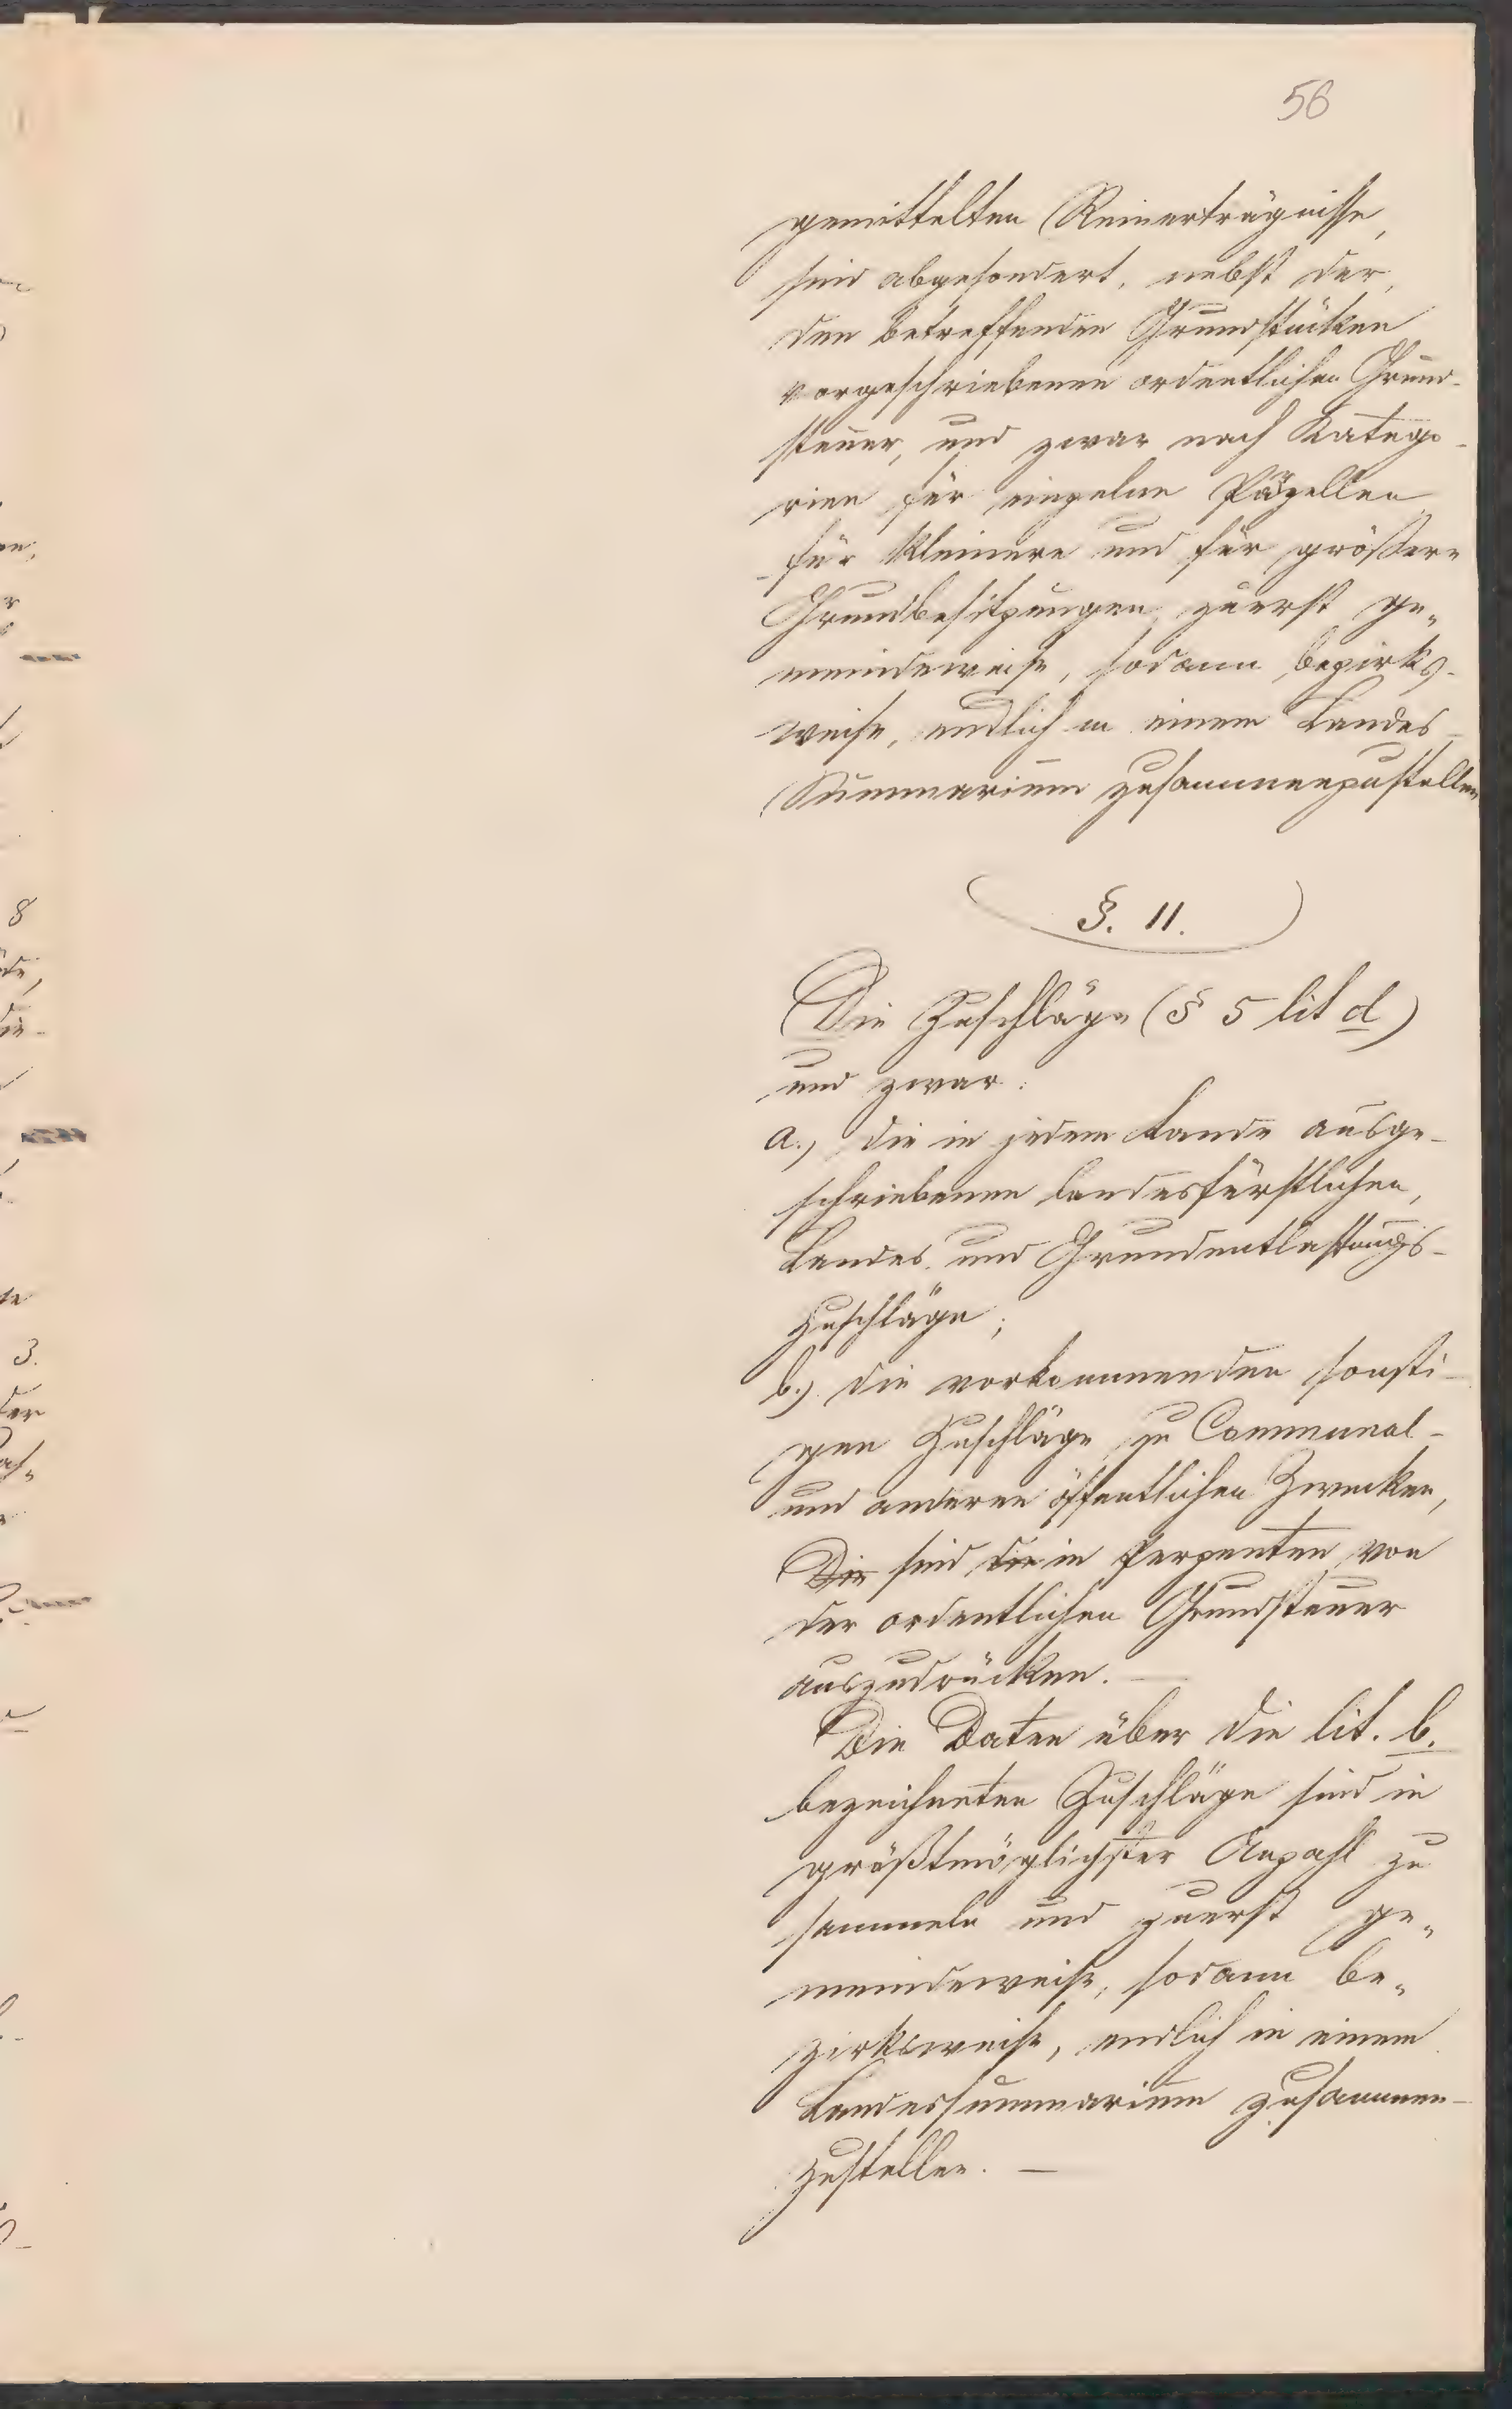 56
gemittelten Reinerträgnisse,
sind abgesondert, nebst der,
den betreffenden Grundstücken
vorgeschriebenen ordentlichen Grund-
steuer, und zwar nach Katego-
rien für einzelne Parzellen
für kleinere und für größere
Grundbesitzungen, zuerst ge-
meindeweise, sodann bezirks-
weise, endlich in einem Landes-
Summarium zusammenzustellen
§. 11.
Die Zuschläge (§ 5 lit d)
und zwar:
a.) die in jedem Lande ausge-
schriebenen landesfürstlichen,
Landes und Grundentlastungs-
zuschläge;
b.) die vorkommenden sonsti-
gen Zuschläge zu Communal-
und anderen öffentlichen Zwecken,
Die sind die in Perzenten von
der ordentlichen Grundsteuer
auszudrücken. —
Die Daten über die lit. b.
bezeichneten Zuschläge sind in
größtmöglichster Anzahl zu
sammeln und zuerst ge-
meindeweise, sodann be-
zirksweise, endlich in einem
Landessummarium zusammen-
zustellen. —